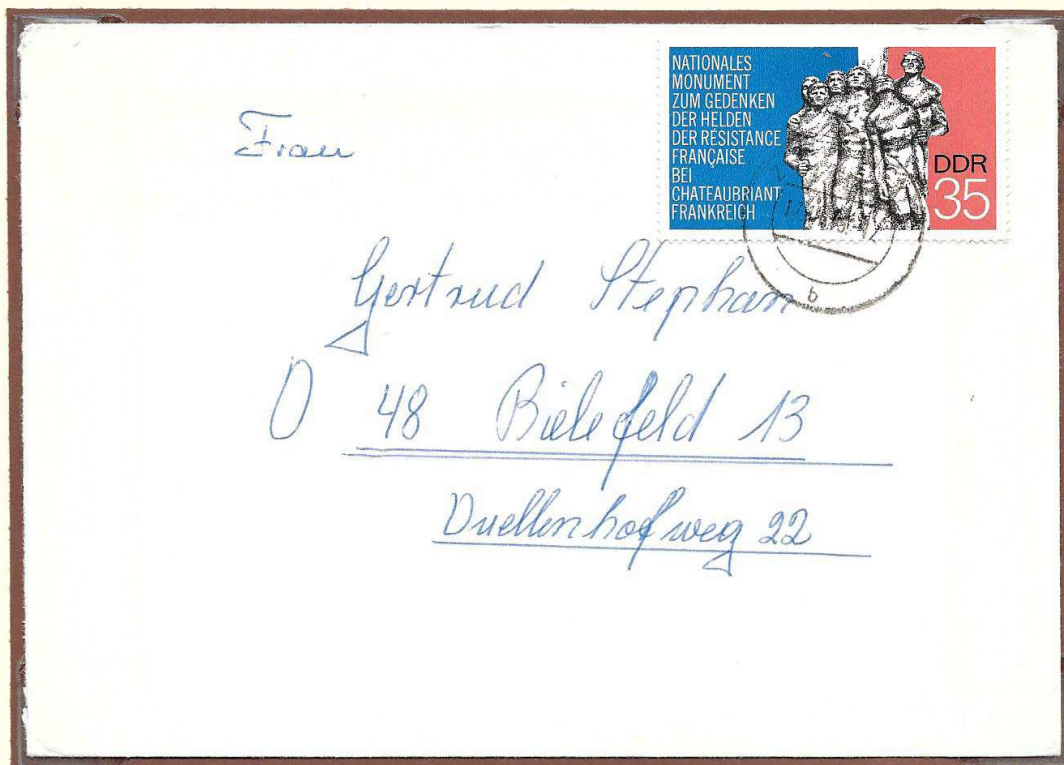 NATIONALES
MONUMENT
ZUM GEDENKEN
DER HELDEN
DER RÉSISTANCE
FRANÇAISE
BEI
CHATEAUBRIANT-
FRANKREICH
DDR
35
b
Frau
Gertrud Stephan
D 48 Bielefeld 13
Quellenhofweg 22